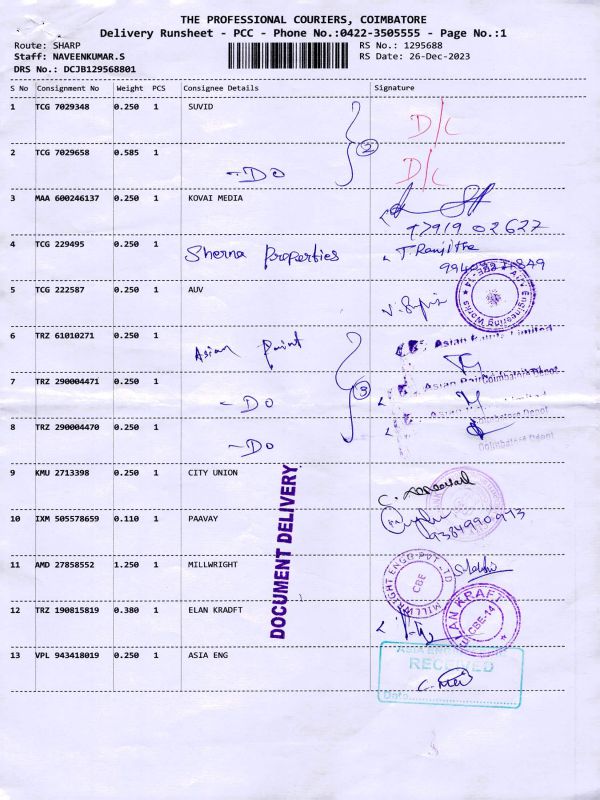 THE PROFESSIONAL COURIERS, COIMBATORE
Delivery Runsheet - PCC - Phone No.:0422-3505555 - Page No.:1
Route: SHARP
RS No.: 1295688
Staff: NAVEENKUMAR.S
RS Date: 26-Dec-2023
DRS No.: DCJB129568801
S No Consignment No Weight PCS Consignee Details Signature
1 TCG 7029348 0.250 1 SUVID D/C
2 TCG 7029658 0.585 1 -DO 2 D/C
3 MAA 600246137 0.250 1 KOVAI MEDIA
4 TCG 229495 0.250 1 Sherna Properties T. Ranjitha
5 TCG 222587 0.250 1 AUV
Engineering Works
6 TRZ 61010271 0.250 1 Asian Paint Asian Paints Limited
Coimbatore Depot
7 TRZ 290004471 0.250 1 -DO 3
Coimbatore Depot
8 TRZ 290004470 0.250 1 -DO
Coimbatore Depot
9 KMU 2713398 0.250 1 CITY UNION
10 IXM 505578659 0.110 1 PAAVAY 9384990973
DOCUMENT DELIVERY
11 AMD 27858552 1.250 1 MILLWRIGHT
MILLWRIGHT ENGG PVT LTD
CBE
12 TRZ 190815819 0.380 1 ELAN KRADFT
ELAN KRAFT
CBE-14
13 VPL 943418019 0.250 1 ASIA ENG
RECEIVED
Date